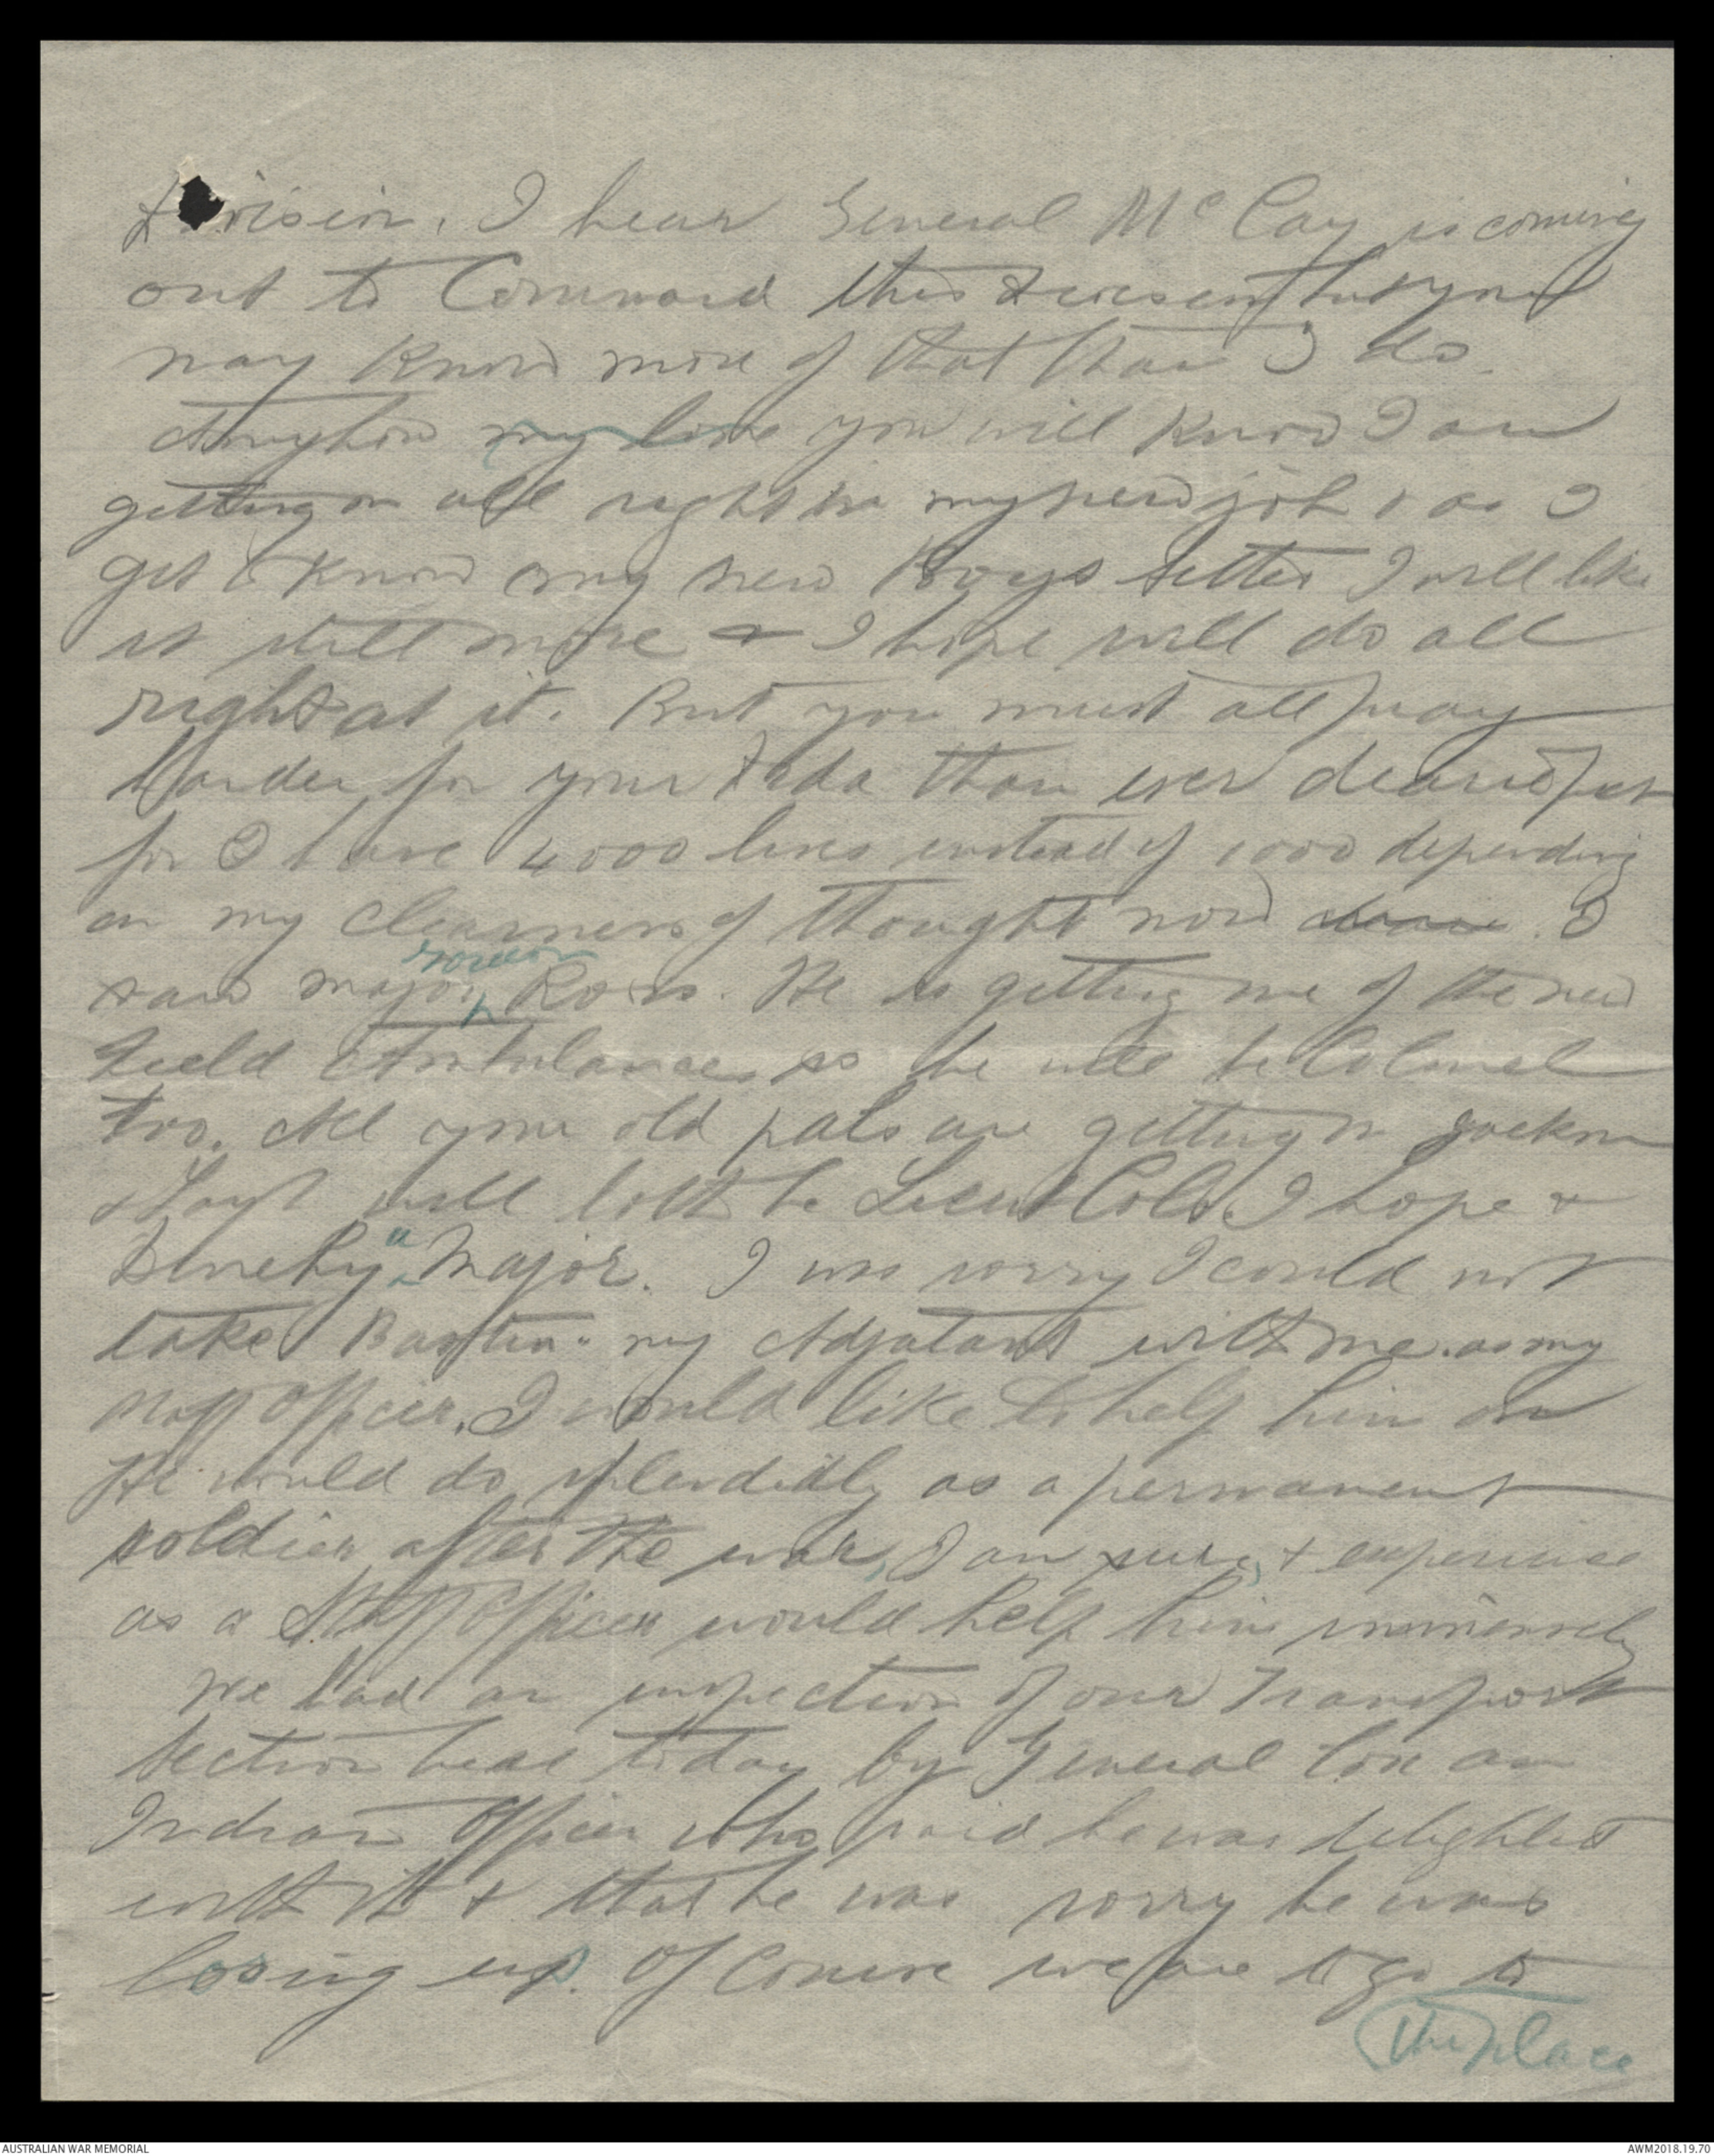 Division. I hear General McCay is coming
out to Command this Division but you
may know more of that than I do.
Anyhow my love you will know I am
getting on all right in my new job & as I
get to know my new Boys better I will like
it still more & I hope will do all
right at it. But you must all pray
harder for your Dada than ever dearest
for I have 4000 lives instead of 1000 depending
on my clearness of thought now. I
saw Major Gordon Ross. He is getting one of the new
Field Ambulances so he will be Colonel
too. All your old pals are getting on Jackson
& Lloyd will both be Lieut Cols. I hope &
Dunchy a Major. I was sorry I could not
take my Adjutant with me as my
Staff Officer. I would like to help him on
He would do splendidly as a permanent
soldier after the war, I am sure, & experience
as a Staff Officer would help him immensely
We had an inspection of our Transport
section here today by General Cox an
Indian Officer who said he was delighted
with it & that he was sorry he was
losing us. Of course we are to go to
the place
AUSTRALIAN WAR MEMORIAL
AWM2018.19.70